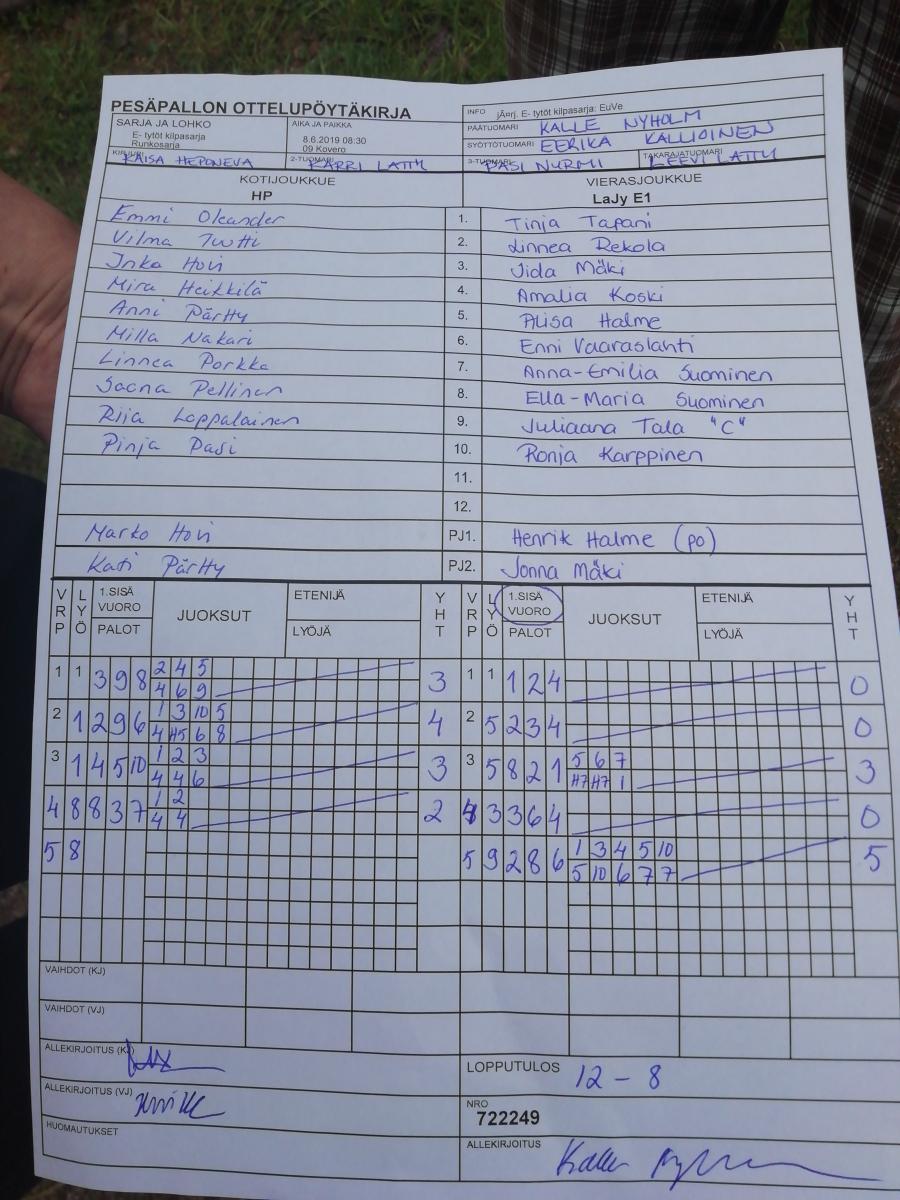 PESÄPALLON OTTELUPÖYTÄKIRJA
INFO jÃ¤rj. E- tytöt kilpasarja: EuVe
SARJA JA LOHKO
E- tytöt kilpasarja
Runkosarja
AIKA JA PAIKKA
8.6.2019 08:30
09 Kovero
PÄÄTUOMARI KALLE NYHOLM
SYÖTTÖTUOMARI EERIKA KALLIOINEN
KIRJURI KAISA HEPONEVA 2-TUOMARI KARRI LATTU 3-TUOMARI PASI NURMI TAKARAJATUOMARI LEEVI LATTU
KOTIJOUKKUE VIERASJOUKKUE
HP LaJy E1
Emmi Oleander 1. Tinja Tapani
Vilma Tuutti 2. Linnea Rekola
Inka Hovi 3. Iida Mäki
Mira Heikkilä 4. Amalia Koski
Anni Pärtty 5. Alisa Halme
Milla Nakari 6. Enni Vaaraslahti
Linnea Porkka 7. Anna-Emilia Suominen
Saana Pellinen 8. Ella-Maria Suominen
Riia Loppalainen 9. Juliaana Tala "C"
Pinja Pasi 10. Ronja Karppinen
11.
12.
Marko Hovi PJ1. Henrik Halme (po)
Kati Pärtty PJ2. Jonna Mäki
VRP LYÖ 1.SISÄ VUORO PALOT JUOKSUT ETENIJÄ LYÖJÄ YHT VRP LYÖ 1.SISÄ VUORO PALOT JUOKSUT ETENIJÄ LYÖJÄ YHT
1 1 3 9 8 2 4 5 3 1 1 1 2 4 0
4 6 9
2 1 2 9 6 1 3 10 5 4 2 5 2 3 4 0
4 H5 6 8
3 1 4 5 10 1 2 3 3 3 5 8 2 1 5 6 7 3
4 4 6 H7 H7 1
4 8 8 3 7 1 2 2 4 3 3 6 4 0
4 4
5 8 5 9 2 8 6 1 3 4 5 10 5
5 10 6 7 7
VAIHDOT (KJ)
VAIHDOT (VJ)
ALLEKIRJOITUS (KJ)
LOPPUTULOS 12 - 8
ALLEKIRJOITUS (VJ)
NRO
722249
HUOMAUTUKSET
ALLEKIRJOITUS